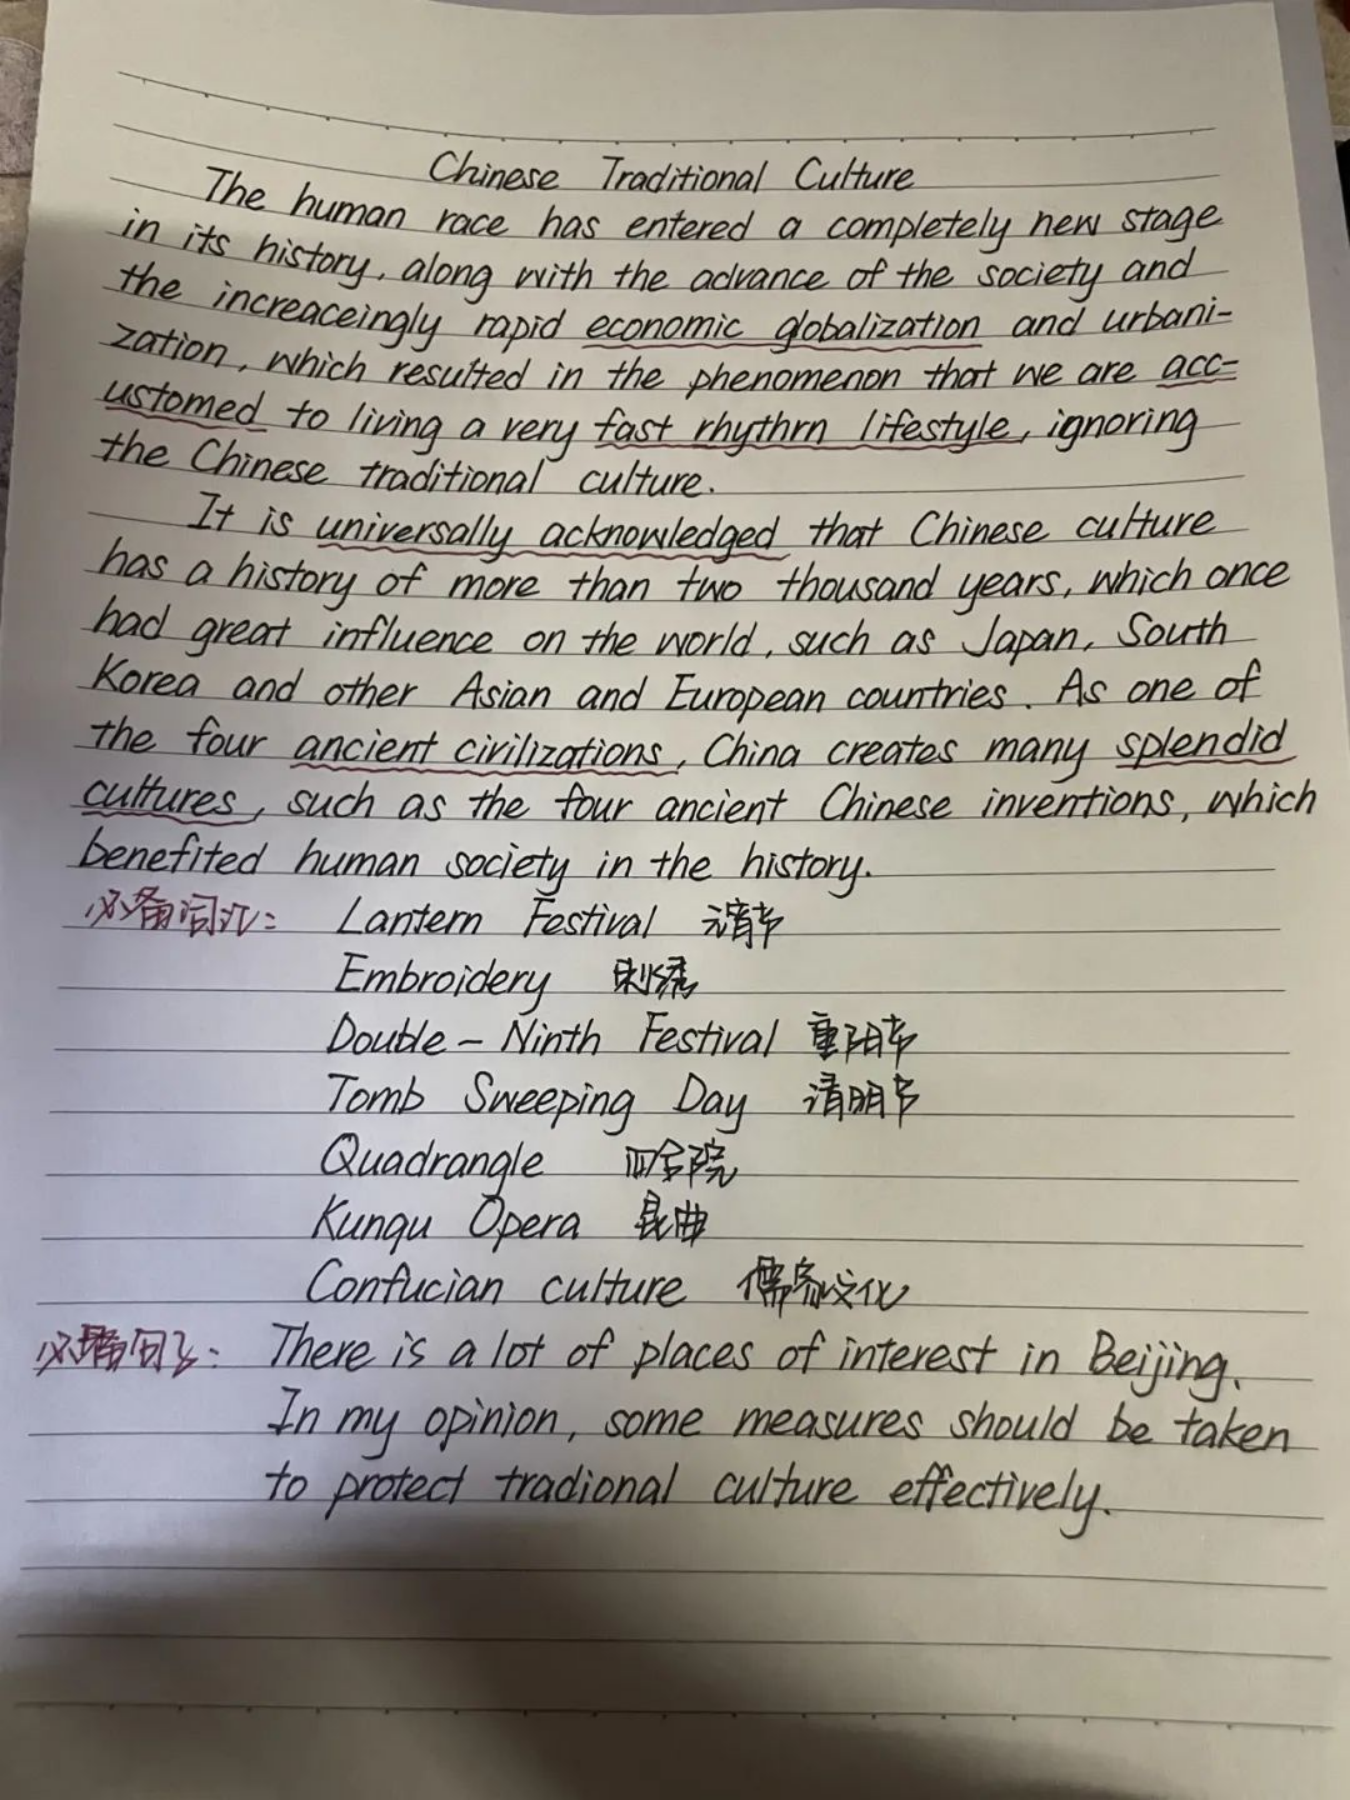 Chinese Traditional Culture
The human race has entered a completely new stage
in its history, along with the advance of the society and
the increaceingly rapid economic globalization and urbani-
zation, which resulted in the phenomenon that we are acc-
ustomed to living a very fast rhythm lifestyle, ignoring
the Chinese traditional culture.
It is universally acknowledged that Chinese culture
has a history of more than two thousand years, which once
had great influence on the world, such as Japan, South
Korea and other Asian and European countries. As one of
the four ancient civilizations, China creates many splendid
cultures, such as the four ancient Chinese inventions, which
benefited human society in the history.
必备词汇: Lantern Festival 元宵节
Embroidery 刺绣
Double-Ninth Festival 重阳节
Tomb Sweeping Day 清明节
Quadrangle 四合院
Kunqu Opera 昆曲
Confucian culture 儒家文化
必备句子: There is a lot of places of interest in Beijing.
In my opinion, some measures should be taken
to protect tradional culture effectively.